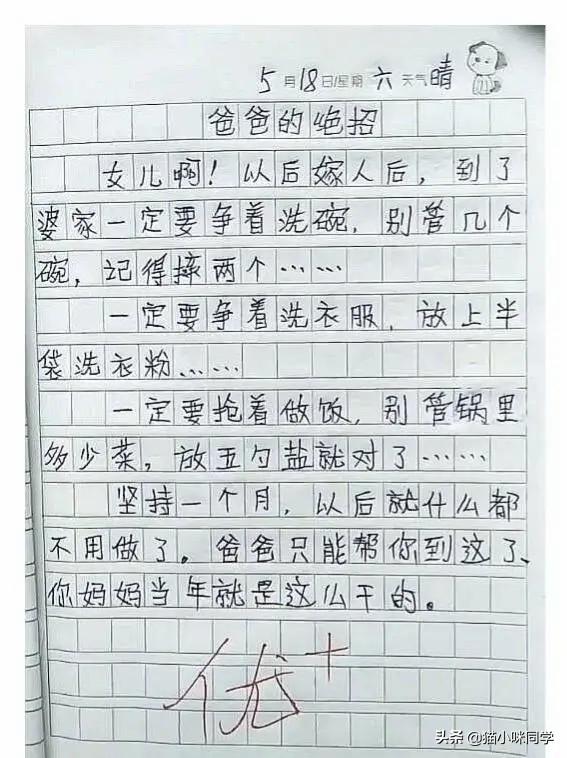 5月18日/星期六 天气晴
爸爸的绝招
女儿啊！以后嫁人后，到了
婆家一定要争着洗碗，别管几个
碗，记得摔两个……
一定要争着洗衣服，放上半
袋洗衣粉……
一定要抢着做饭，别管锅里
多少菜，放五勺盐就对了……
坚持一个月，以后就什么都
不用做了。爸爸只能帮你到这了、
你妈妈当年就是这么干的。
优+
头条 @猫小咪同学